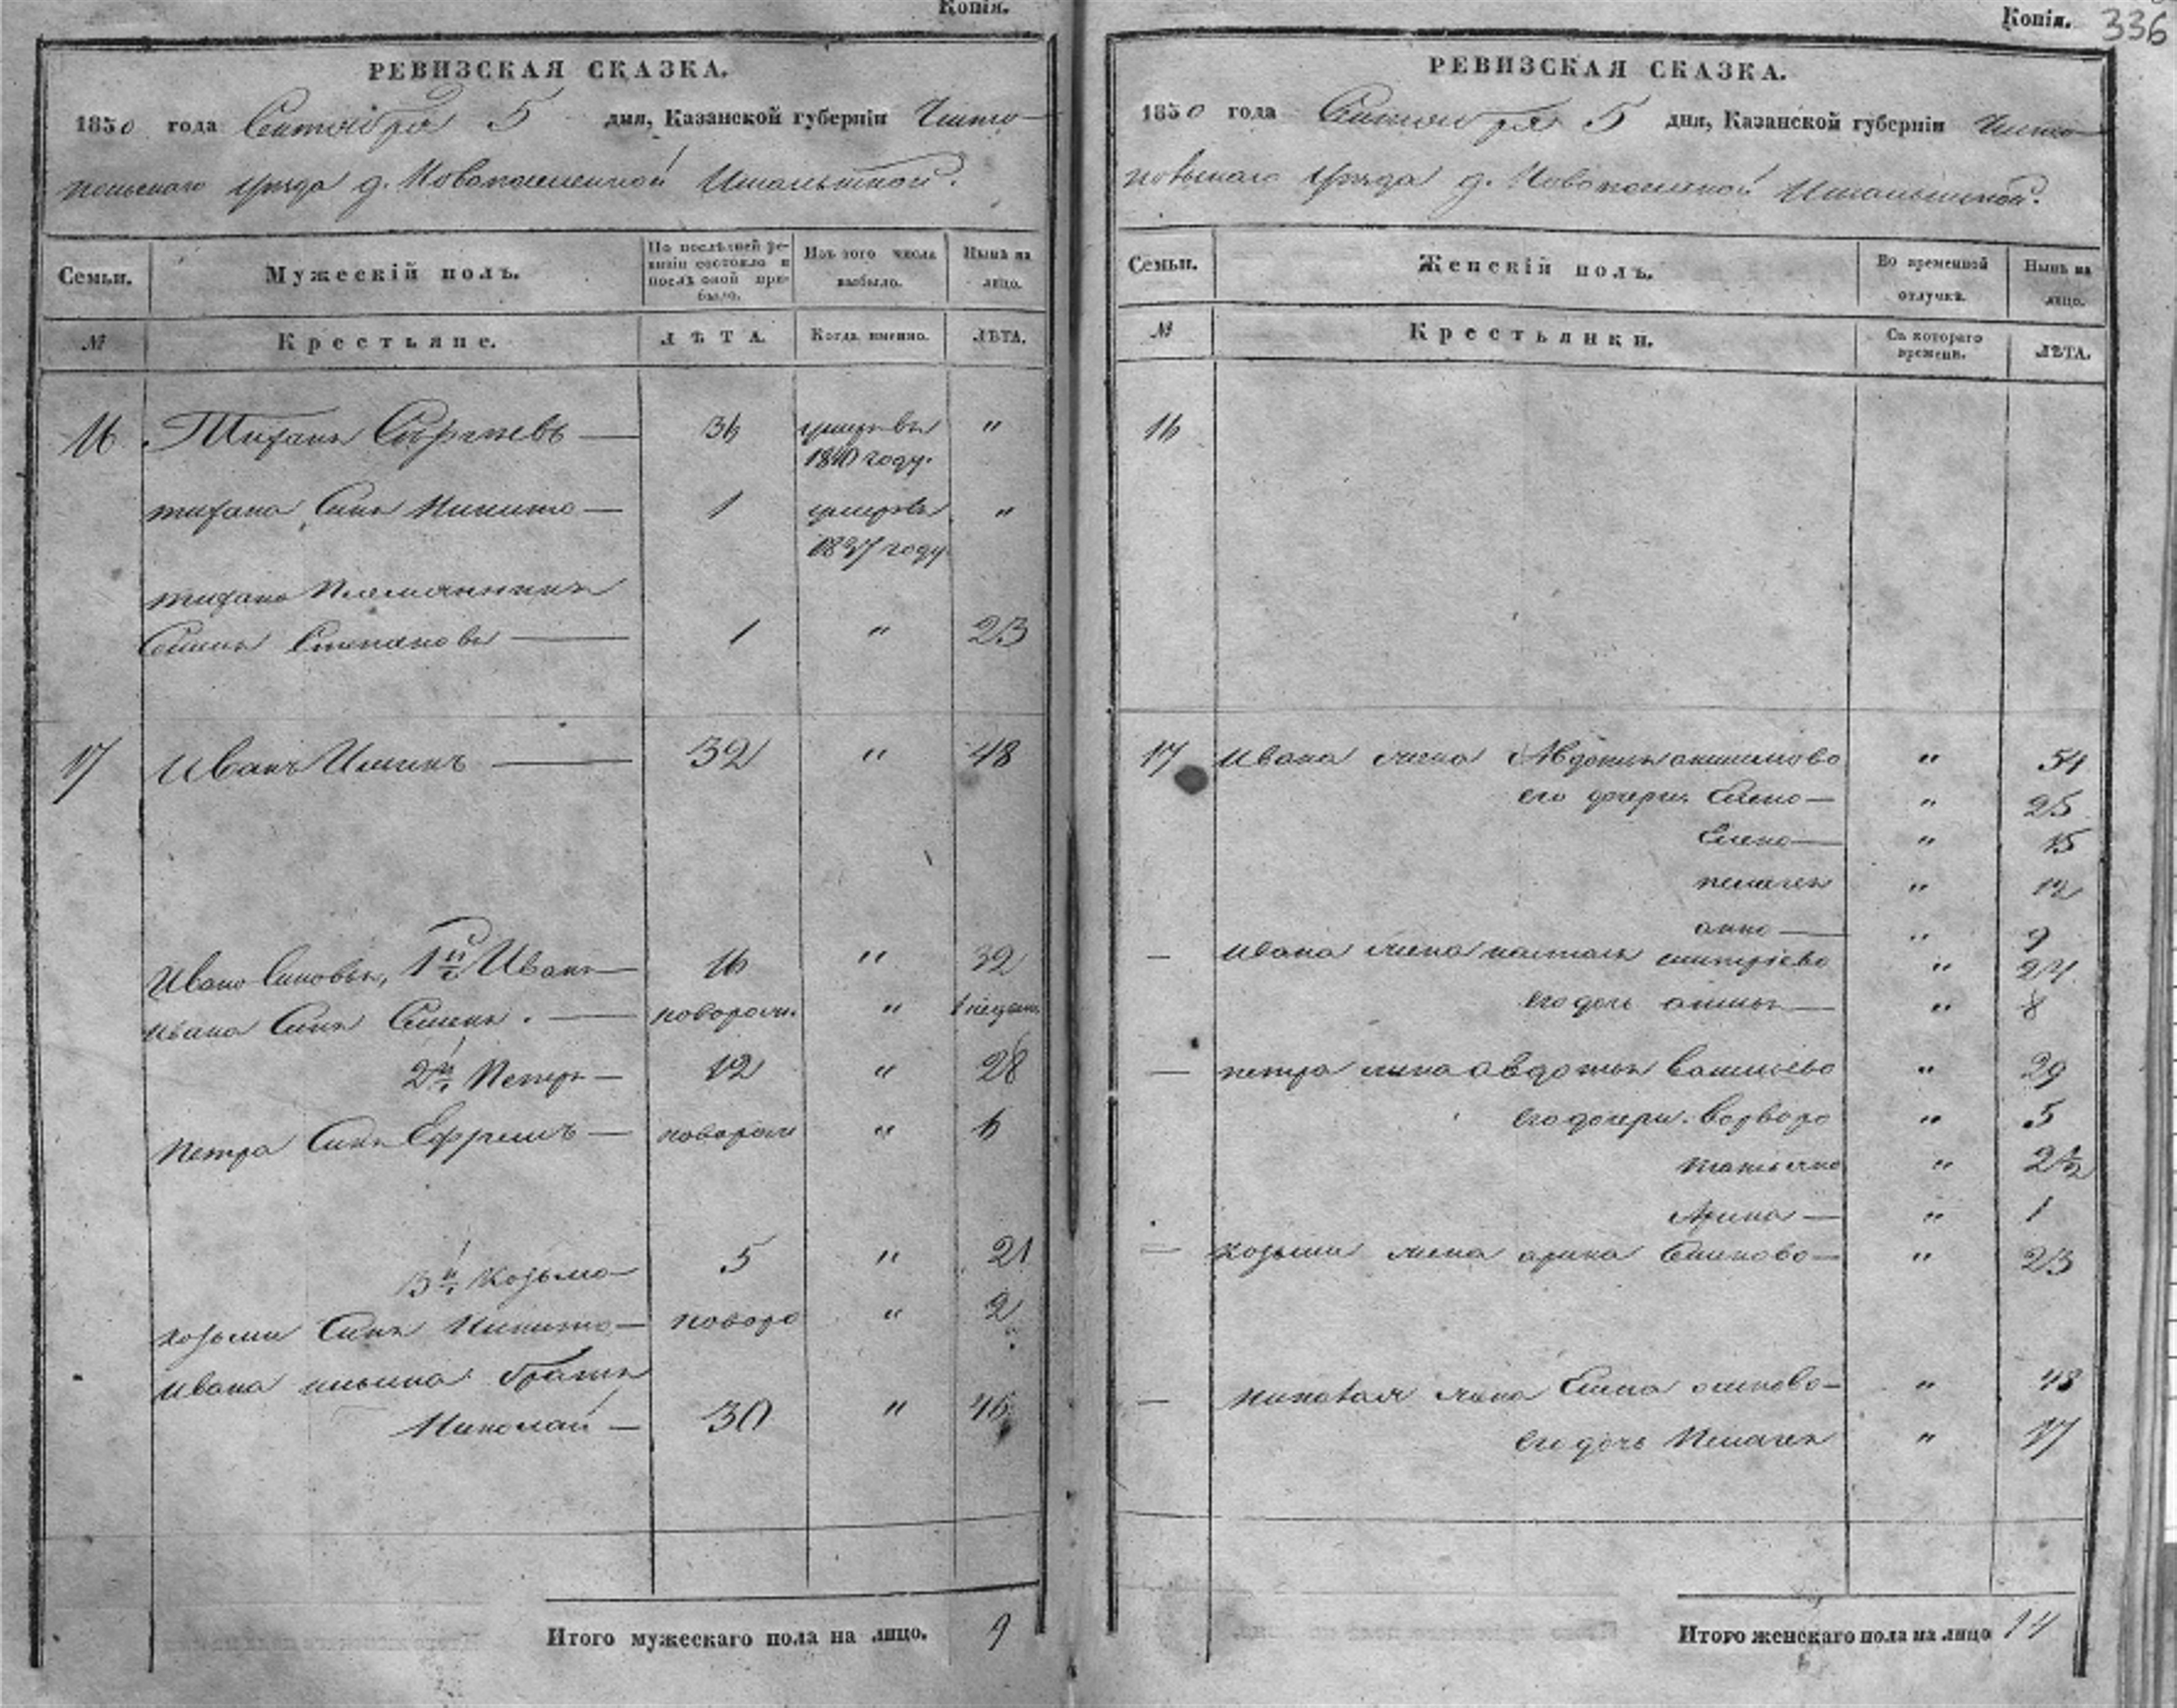 Копія.
РЕВИЗСКАЯ СКАЗКА.
1850 года Сентября 5 дня, Казанской губерніи Чисто-
польскаго уѣзда д. Новопошленной
Семьи.
Мужескій полъ.
По послѣдней ре-
визіи состояло и
послѣ оной при-
было.
Изъ того числа
выбыло.
Нынѣ на
лицо.
№
Крестьяне.
ЛѢТА.
Когда именно.
ЛѢТА.
16 Сергѣевъ — 36 умеръ въ "
1840 году.
Сынъ Никита — 1 умеръ въ "
1837 году
Племянникъ
Семенъ Степановъ — 1 " 23
17 Иванъ Ильинъ — 32 " 48
Ивана Сыновья, 1й Иванъ — 16 " 32
Ивана Сынъ Семенъ. — новорож. "
2й Петръ — 12 " 28
Петра Сынъ Ефремъ — новорож " 6
3й Козьма — 5 " 21
Козьмы Сынъ Никита — новоро " 2
Ивана Ильина братъ
Николай — 30 " 46
Итого мужескаго пола на лицо. 9
Копія. 336
РЕВИЗСКАЯ СКАЗКА.
1850 года Сентября 5 дня, Казанской губерніи Чисто-
польскаго уѣзда д.
Семьи.
Женскій полъ.
Во временной
отлучкѣ.
Нынѣ на
лицо.
№
Крестьянки.
Съ котораго
времени.
ЛѢТА.
16
17 Ивана жена Авдотья " 54
его дочери. Елена — " 25
Елена — " 15
пелагея " 12
анна — " 9
— Ивана жена " 27
его дочь — " 8
— петра жена авдотья васильева " 29
его дочери. варвара " 5
татьяна " 2½
Арина — " 1
— козьмы жена арина — " 23
— николая жена Елена осипова — " 43
его дочь Пелагея " 17
Итого женскаго пола на лицо 14